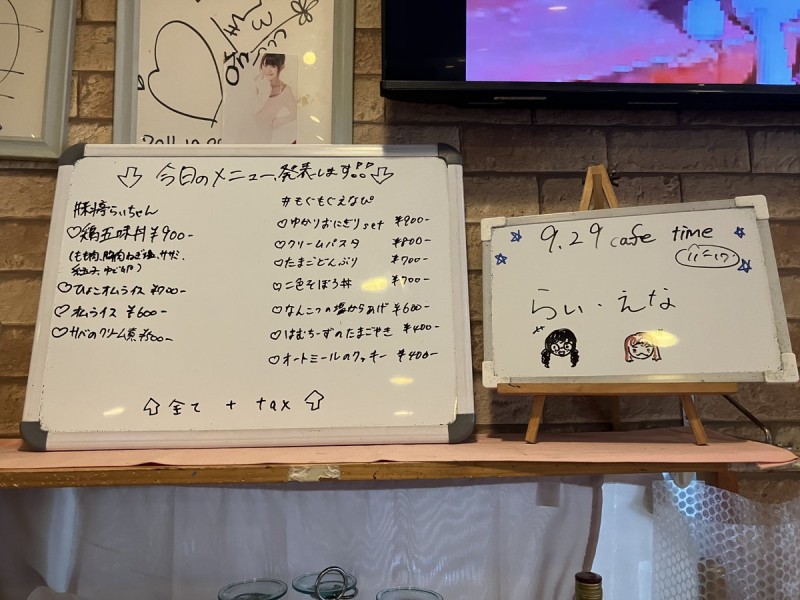 今日のメニュー、発表します!!
らいちゃん
♡鶏五味丼 ¥900-
♡ひよこオムライス ¥700-
♡オムライス ¥600-
♡サバのクリーム煮 ¥500-
全て + tax
#もぐもぐえなぴ
♡ゆかりおにぎりset ¥900-
♡クリームパスタ ¥800-
♡たまごどんぶり ¥700-
♡二色そぼろ丼 ¥700-
♡なんこつの塩からあげ ¥600-
♡はむちーずのたまごやき ¥400-
♡オートミールのクッキー ¥400-
9.29 cafe time
11-17
らい・えな